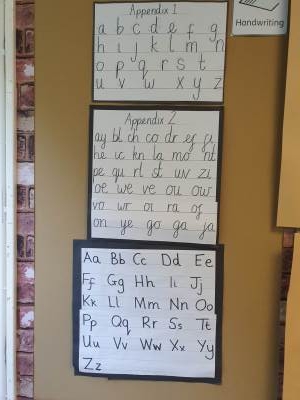 Handwriting
Appendix 1
a b c d e f g
h i j k l m n
o p q r s t
u v w x y z
Appendix 2
ay bl ch co dr ef fi
he ic kn la mo nt
pe qu rl st uv zi
oe we ve ou ow
va wr oi ra of
on ye go ga ja
Aa Bb Cc Dd Ee
Ff Gg Hh Ii Jj
Kk Ll Mm Nn Oo
Pp Qq Rr Ss Tt
Uu Vv Ww Xx Yy
Zz